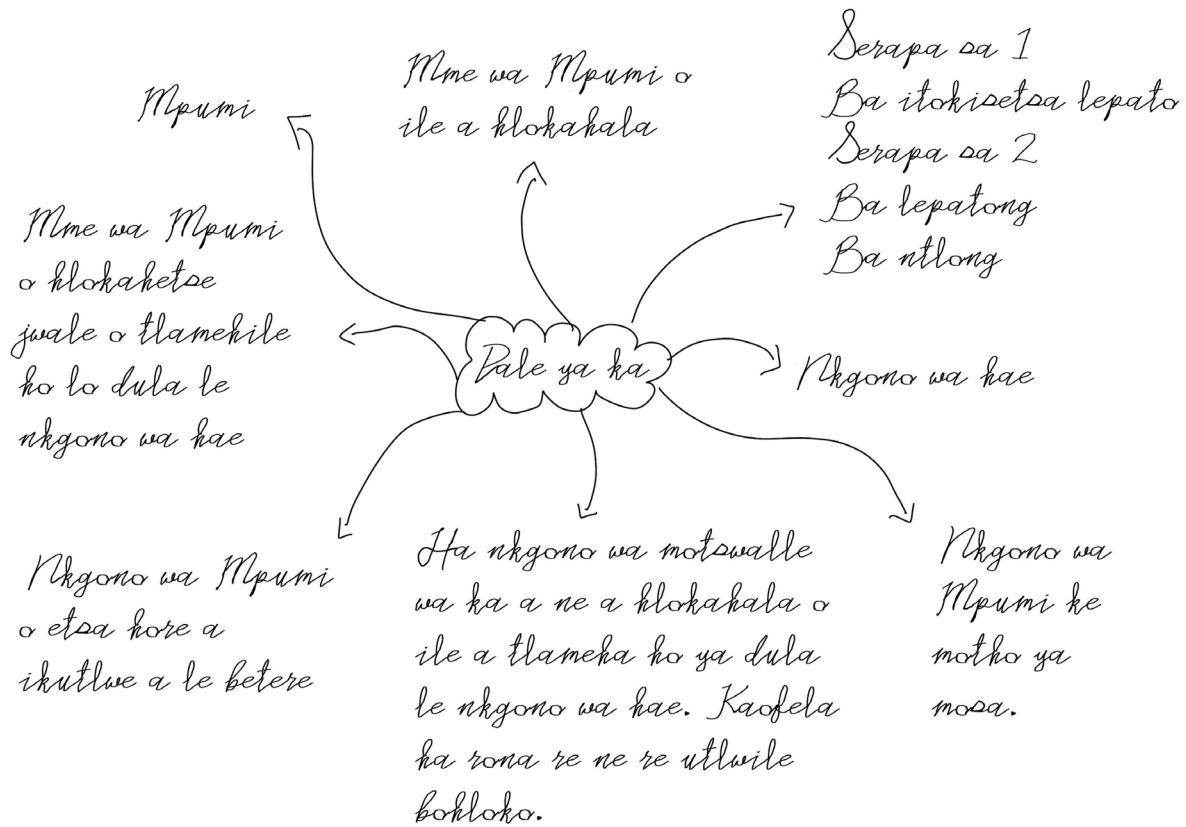 Mpumi
Mme wa Mpumi o
ile a hlokahala
Serapa sa 1
Ba itokisetsa lepato
Serapa sa 2
Ba lepatong
Ba ntlong
Mme wa Mpumi
o hlokahetse
jwale o tlamehile
ho lo dula le
nkgono wa hae
Pale ya ka
Nkgono wa hae
Nkgono wa Mpumi
o etsa hore a
ikutlwe a le betere
Ha nkgono wa motswalle
wa ka a ne a hlokahala o
ile a tlameha ho ya dula
le nkgono wa hae. Kaofela
ha rona re ne re utlwile
bohloko.
Nkgono wa
Mpumi ke
motho ya
mosa.